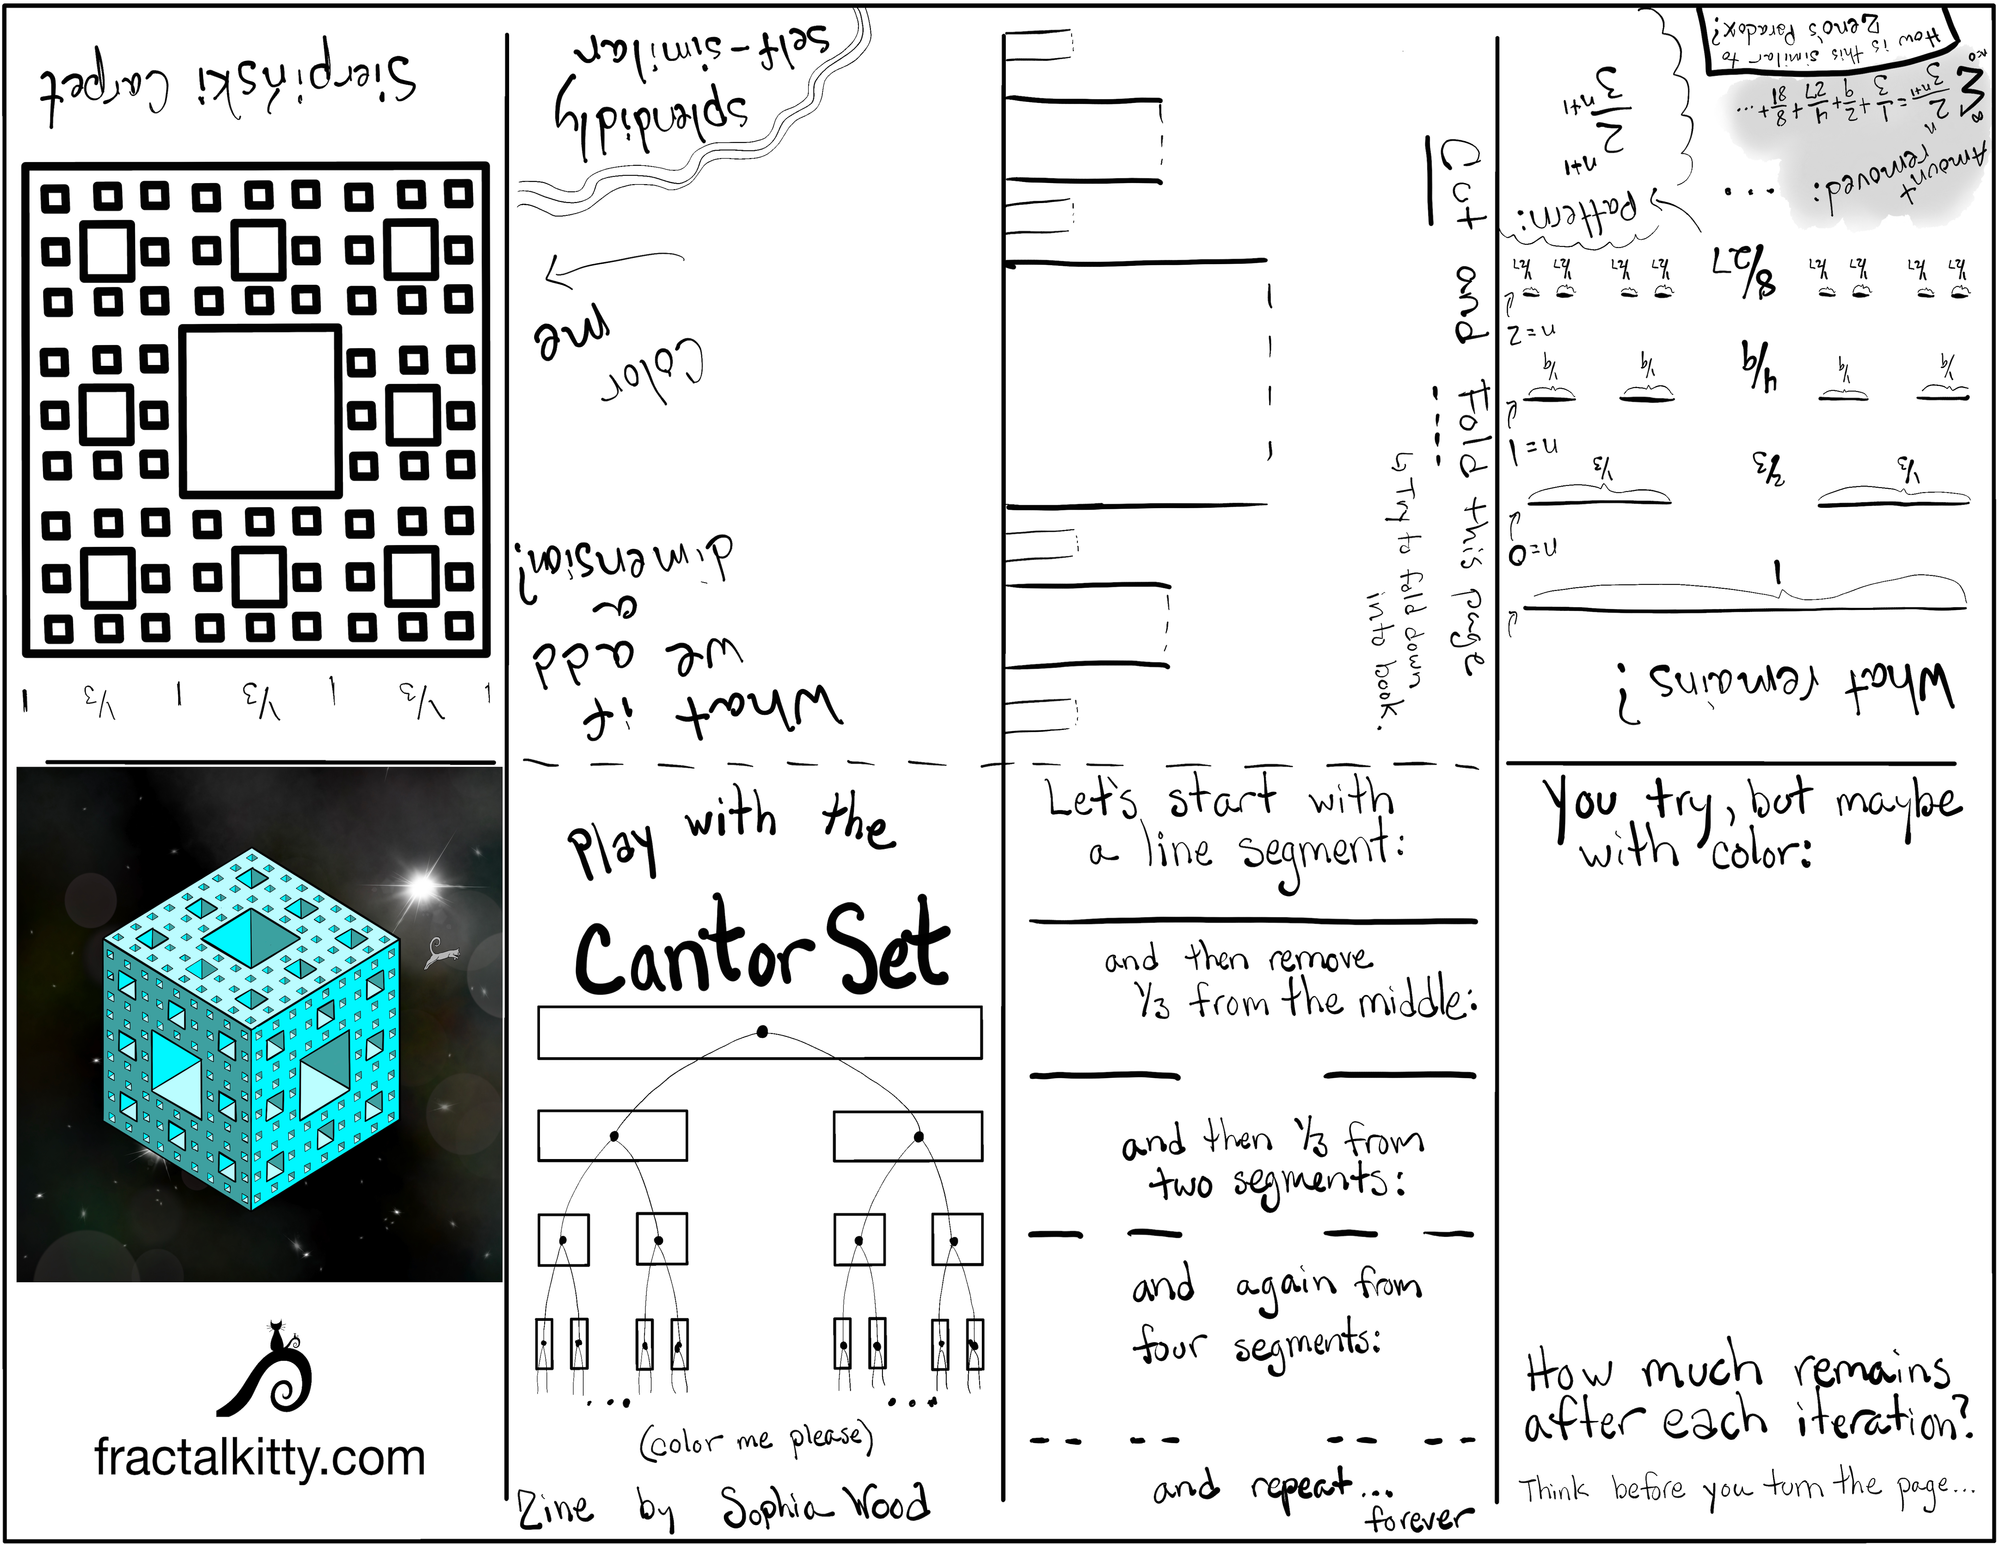 Play with the
Cantor Set
...
...
(color me please)
Zine by Sophia Wood
Let's start with
a line segment:
and then remove
1/3 from the middle:
and then 1/3 from
two segments:
and again from
four segments:
and repeat...
forever
You try, but maybe
with color:
How much remains
after each iteration?
Think before you turn the page...
What remains?
1
n=0
1/3 2/3 1/3
n=1
1/9 1/9 4/9 1/9 1/9
n=2
1/27 1/27 1/27 1/27 8/27 1/27 1/27 1/27 1/27
...
Pattern:
2^(n+1)/3^(n+1)
Amount
removed:
∞ Σ n=0 2^n/3^(n+1) = 1/3 + 2/9 + 4/27 + 8/81 + ...
How is this similar to
Zeno's Paradox?
Cut and Fold this page
↳ Try to fold down
into book.
What if
we add
a
dimension?
Color
me
splendidly
self-similar
1/3 1/3 1/3
Sierpiński Carpet
fractalkitty.com